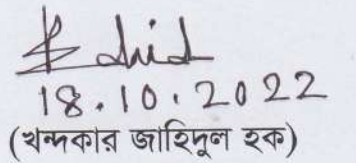 18.10.2022
(খন্দকার জাহিদুল হক)